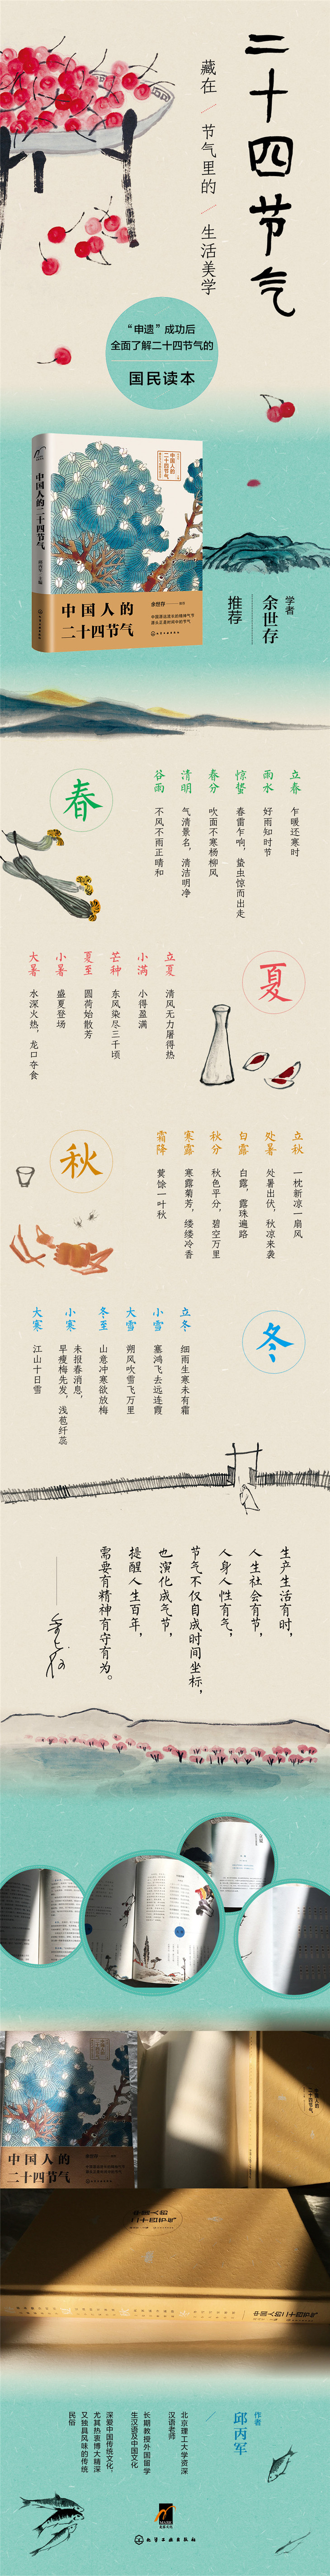 二十四节气
藏在 / 节气里的 / 生活美学
“申遗”成功后
全面了解二十四节气的
国民读本
中国人的二十四节气
中国人的
二十四节气
余世存
中国人的
二十四节气
化学工业出版社
学者
余世存
推荐
春
立春 乍暖还寒时
雨水 好雨知时节
惊蛰 春雷乍响，蛰虫惊而出走
春分 吹面不寒杨柳风
清明 气清景名，清洁明净
谷雨 不风不雨正晴和
夏
立夏 清风无力屠得热
小满 小得盈满
芒种 东风染尽三千顷
夏至 圆荷始散芳
小暑 盛夏登场
大暑 水深火热，龙口夺食
秋
立秋 一枕新凉一扇风
处暑 处暑出伏，秋凉来袭
白露 白露，露珠遍路
秋分 秋色平分，碧空万里
寒露 寒露菊芳，缕缕冷香
霜降 霜馀一叶秋
冬
立冬 细雨生寒未有霜
小雪 塞鸿飞去远连霞
大雪 朔风吹雪飞万里
冬至 山意冲寒欲放梅
小寒 未报春消息，
早瘦梅先发，浅苞纤蕊
大寒 江山十日雪
生产生活有时，
人生社会有节，
人身人性有气，
节气不仅自成时间坐标，
也演化成气节，
提醒人生百年，
需要有精神有守有为。
中国人的
二十四节气
作者
邱丙军
北京理工大学资深
汉语老师
长期教授外国留学
生汉语及中国文化
深爱中国传统文化，
尤其热衷博大精深
又独具风味的传统
民俗
化学工业出版社